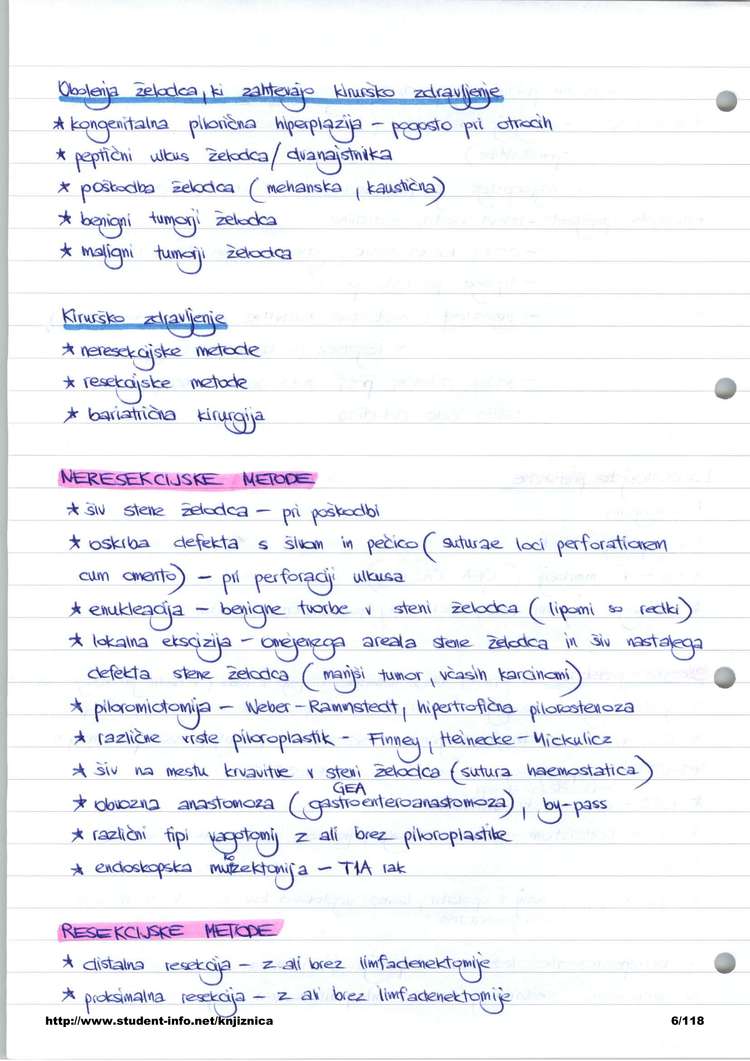 Obolenja želodca, ki zahtevajo kirurško zdravljenje
* kongenitalna pilorična hiperplazija – pogosto pri otrocih
* peptični ulkus želodca / dvanajstnika
* poškodba želodca ( mehanska , kaustična )
* benigni tumorji želodca
* maligni tumorji želodca
Kirurško zdravljenje
* neresekcijske metode
* resekcijske metode
* bariatrična kirurgija
NERESEKCIJSKE METODE
* šiv stene želodca – pri poškodbi
* oskrba defekta s šivom in pečico ( suturae loci perforationem
cum omento ) – pri perforaciji ulkusa
* enukleacija – benigne tvorbe v steni želodca ( lipomi so redki )
* lokalna ekscizija – omejenega areala stene želodca in šiv nastalega
defekta stene želodca ( manjši tumor , včasih karcinomi )
* piloromiotomija – Weber – Rammstedt , hipertrofična pilorostenoza
* različne vrste piloroplastik – Finney , Heinecke – Mickulicz
* šiv na mestu krvavitve v steni želodca ( sutura haemostatica )
GEA
* obvozna anastomoza ( gastroenteroanastomoza ) , by-pass
* različni tipi vagotomij z ali brez piloroplastike
* endoskopska mukozektomija – T1A rak
RESEKCIJSKE METODE
* distalna resekcija – z ali brez limfadenektomije
* proksimalna resekcija – z ali brez limfadenektomije
http://www.student-info.net/knjiznica 6/118